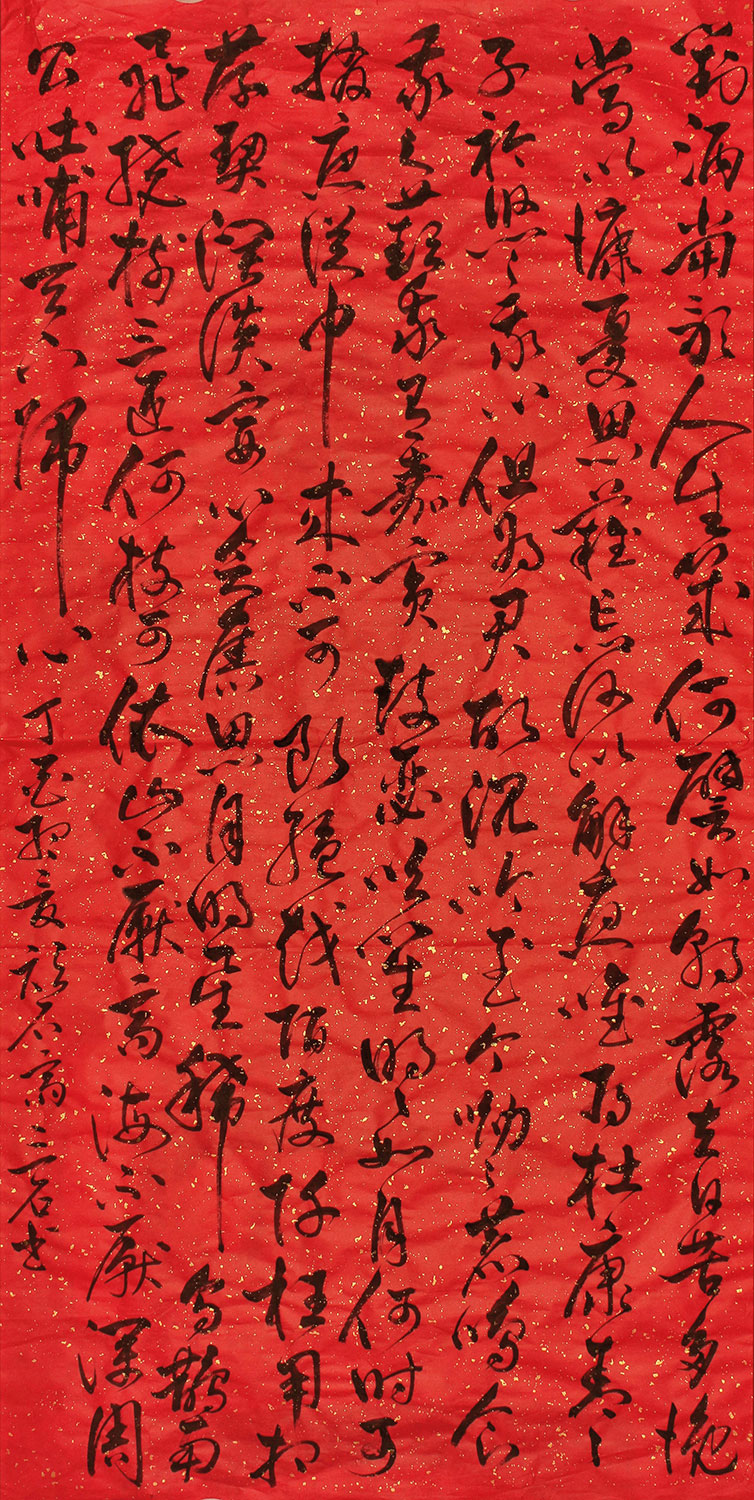 對酒當歌人生幾何譬如朝露去日苦多慨
當以慷憂思難忘何以解憂唯有杜康青〻
子衿悠〻我心但為君故沉吟至今呦〻鹿鳴食
野之苹我有嘉賓鼓瑟吹笙明〻如月何時可
掇憂從中來不可斷絕越陌度阡枉用相
存契闊談讌心念舊恩月明星稀烏鵲南
飛繞樹三匝何枝可依山不厭高海不厭深周
公吐哺天下歸心
丁酉初夏石齋三石書